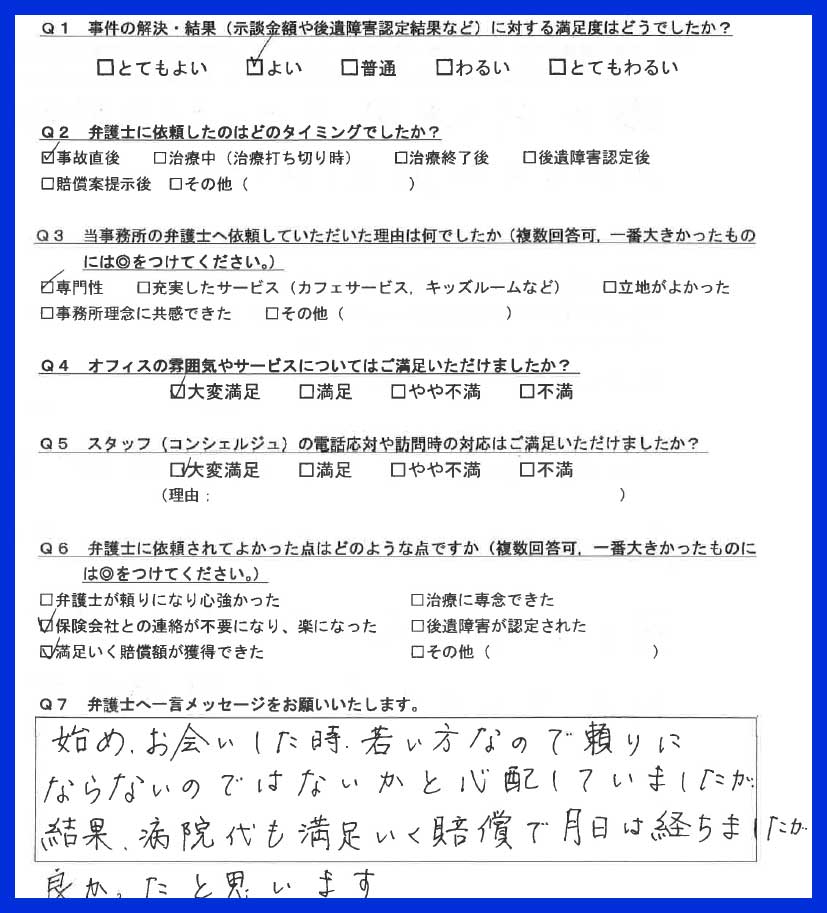 Q1 事件の解決・結果（示談金額や後遺障害認定結果など）に対する満足度はどうでしたか？
□とてもよい ☑よい □普通 □わるい □とてもわるい
Q2 弁護士に依頼したのはどのタイミングでしたか？
☑事故直後 □治療中（治療打ち切り時） □治療終了後 □後遺障害認定後
□賠償案提示後 □その他（ ）
Q3 当事務所の弁護士へ依頼していただいた理由は何でしたか（複数回答可，一番大きかったもの
には◎をつけてください。）
☑専門性 □充実したサービス（カフェサービス，キッズルームなど） □立地がよかった
□事務所理念に共感できた □その他（ ）
Q4 オフィスの雰囲気やサービスについてはご満足いただけましたか？
☑大変満足 □満足 □やや不満 □不満
Q5 スタッフ（コンシェルジュ）の電話応対や訪問時の対応はご満足いただけましたか？
☑大変満足 □満足 □やや不満 □不満
（理由： ）
Q6 弁護士に依頼されてよかった点はどのような点ですか（複数回答可，一番大きかったものに
は◎をつけてください。）
□弁護士が頼りになり心強かった □治療に専念できた
☑保険会社との連絡が不要になり、楽になった □後遺障害が認定された
☑満足いく賠償額が獲得できた □その他（ ）
Q7 弁護士へ一言メッセージをお願いいたします。
始め、お会いした時、若い方なので頼りに
ならないのではないかと心配していましたが
結果、病院代も満足いく賠償で月日は経ちましたが
良かったと思います